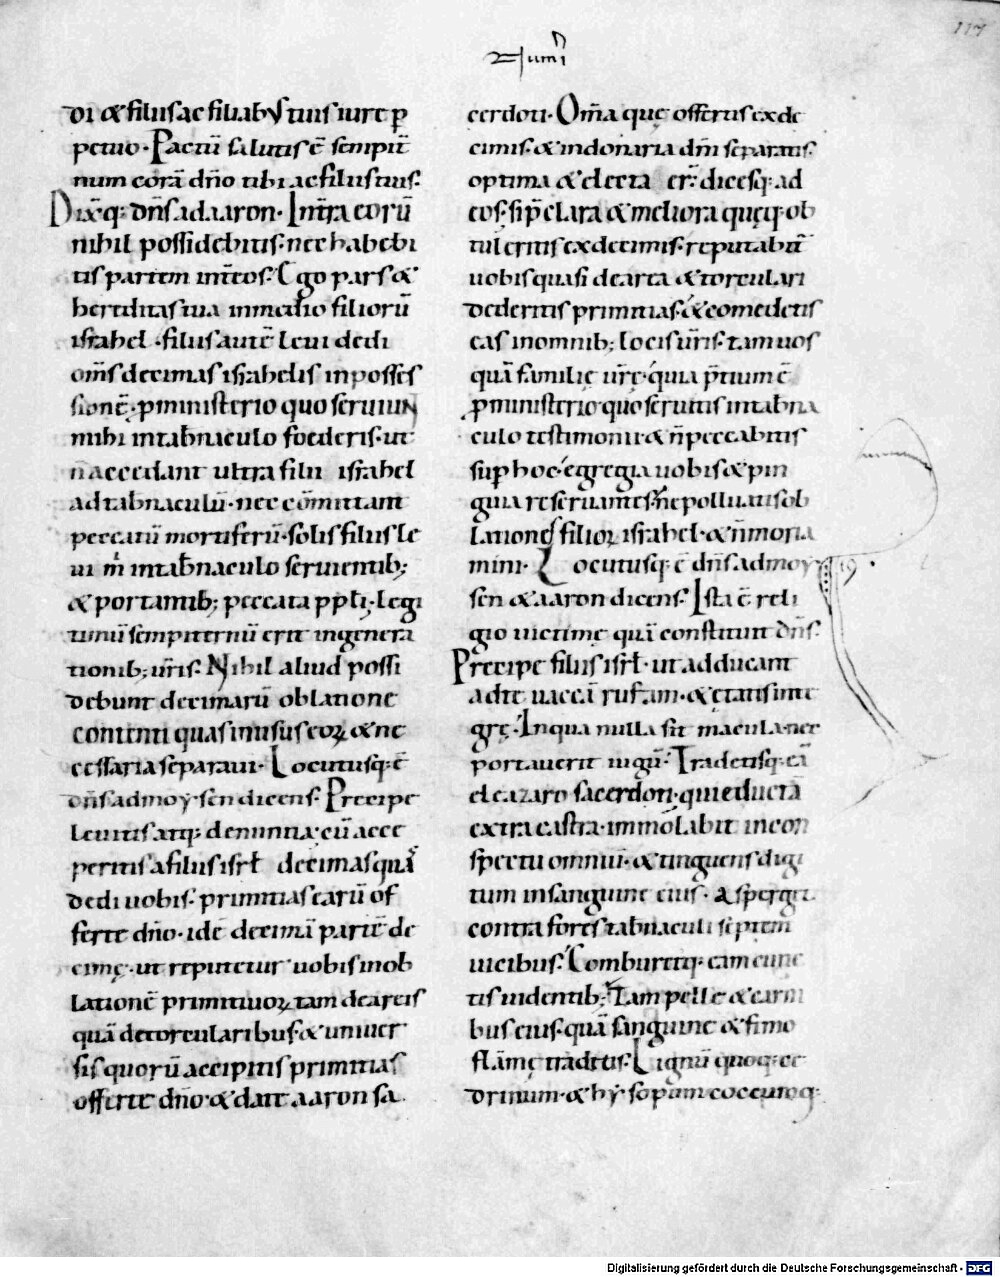 117
Numi
di & filiis ac filiabus tuis iure p
petuo. Pactū salutis ē sempit̄
num corā dn̄o tibi ac filiis tuis.
Dixitq: dn̄s ad aaron. In tr̄a eorū
nihil possidebitis. nec habebi
tis partem int̄ eos. Ego pars &
hereditas tua in medio filiorū
israhel. filiis autē leui dedi
om̄s decimas israhelis in posses
sionē. p ministerio quo seruiun
mihi in tab̄naculo foederis. ut
n̄ accedant ultra filii israhel
ad tabnaculū. nec cōmittant
peccatū mortiferū. solis filiis le
ui m̄ in tab̄naculo seruientib;
& portantib; peccata pp̄li. Legi
timū sempiternū erit in genera
tionib; ur̄is. Nihil aliud possi
debunt decimarū oblatione
contenti quas in usus eoꝝ & ne
cessaria separaui. Locutusq: ē
dn̄s ad moy sen dicens. Precipe
leuitis atq: denuntia. cū acce
peritis a filiis isrł decimas quā
dedi uobis. primitias earū of
ferte dn̄o. idē decimā partē de
cimę. ut reputetur uobis in ob
lationē primitiuoꝝ tam de areis
quā de torcularibus. & uniuer
sis quorū accipitis primitias
offerte dn̄o. & date aaron sa
cerdoti. Om̄a quę offertis ex de
cimis. & in donaria dn̄i separatis.
optima & electa er̄. dicesq: ad
eos. si p̄clara & meliora quęq: ob
tuleritis ex decimis. reputabit̄
uobis quasi de area & torculari
dederitis primitias. & comedetis
eas in omnib; locis ur̄is. tam uos
quā familię ur̄ę. quia p̄tium ē
p ministerio quo seruitis in tabna
culo testimonii. & n̄ peccabitis
sup hoc. egregia uobis & pin
guia reseruantes. ne polluatis ob
lationes filioꝝ israhel. & n̄ moria
mini. Locutusq: ē dn̄s ad moy
sen & aaron dicens. Ista ē reli
gio uictimę quā constituit dn̄s.
Precipe filiis isrł. ut adducant
ad te uaccā rufam. & ętatis inte
grę. In qua nulla sit macula. nec
portauerit iugū. Tradetisq: eā
eleazaro sacerdoti. qui eductā
extra castra. immolabit in con
spectu omniū. & tinguens digi
tum in sanguine eius. asperget
contra fores tabnaculi septem
uicibus. Comburetq: eam cunc
tis uidentib; Tam pelle & carni
bus eius. quā sanguine & fimo
flāmę traditis. Lignū quoq: ce
drinum. & hy sopum coccumq:
Digitalisierung gefördert durch die Deutsche Forschungsgemeinschaft - DFG